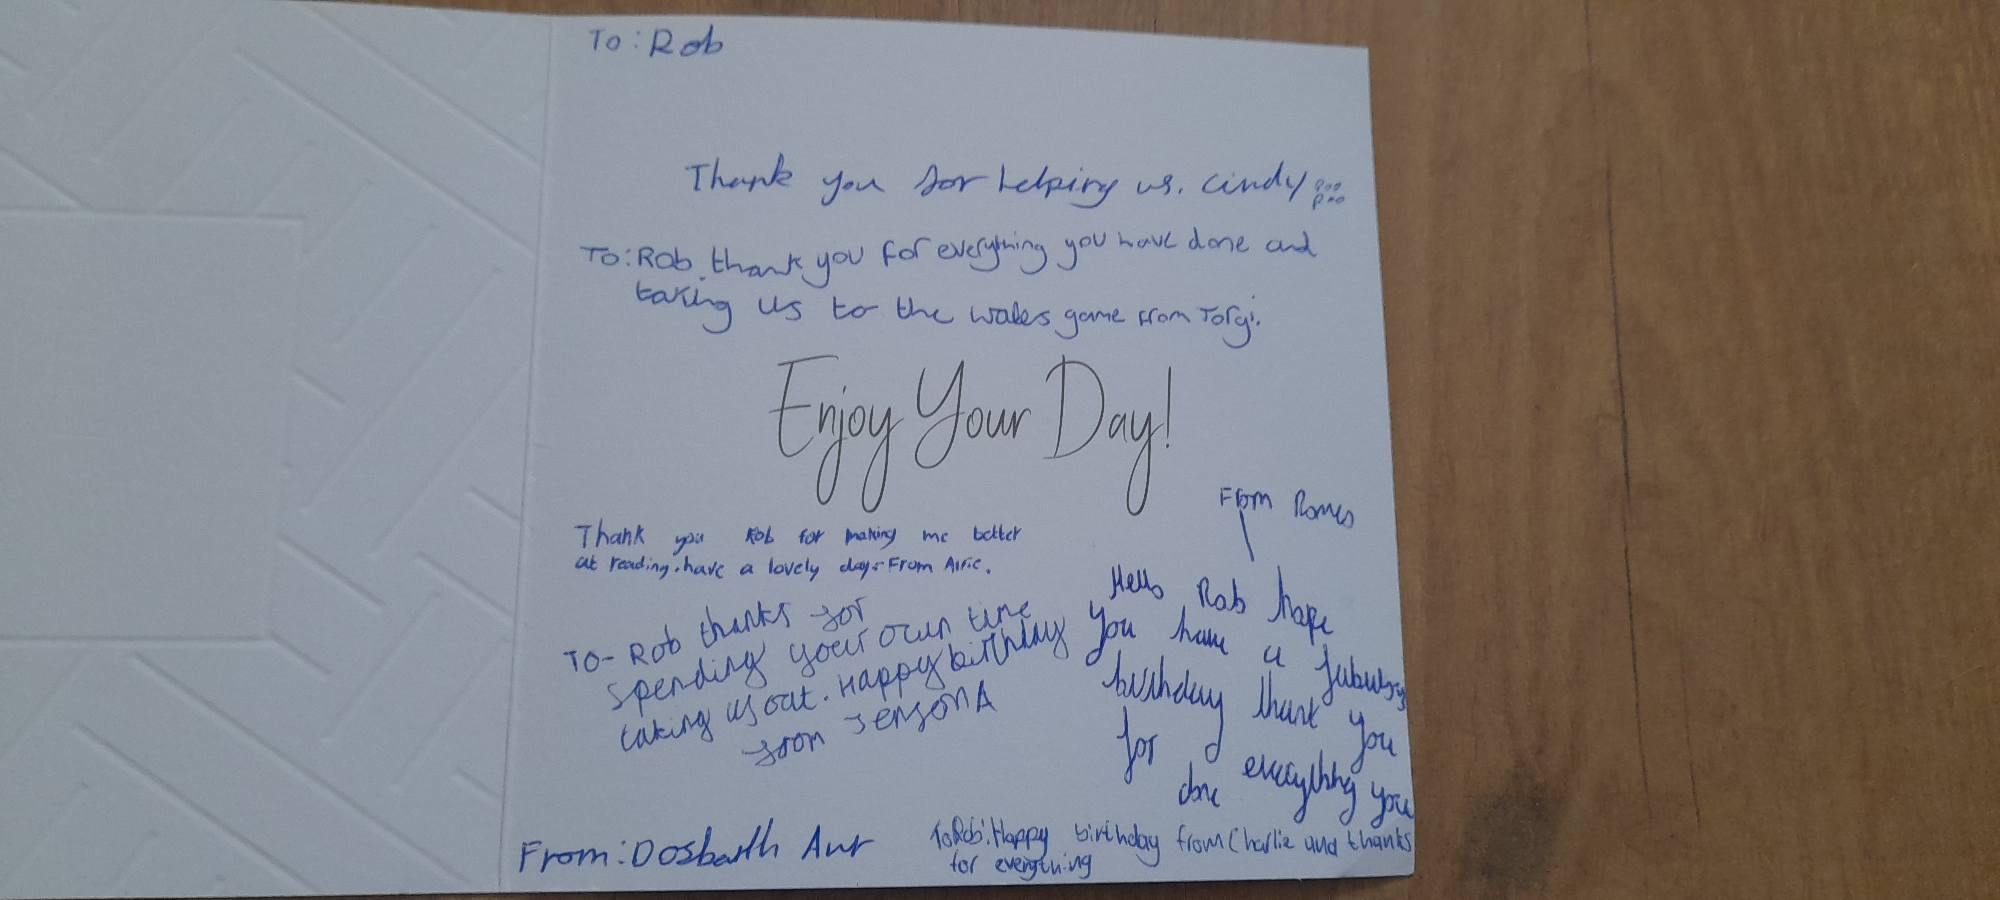 To: Rob
Thank you for helping us. Cindy
To: Rob thank you for everything you have done and
taking us to the wales game from Torgi.
Enjoy Your Day!
Thank you Rob for making me better
at reading. have a lovely day. From Alfie.
From Romeo
Hello Rob hope
you have a
birthday thank you
for everything you
done
To- Rob thanks for
spending your own time
taking us out. Happy birthday
from Jenson A
From: Dosbarth Aur
To Rob: Happy birthday from Charlie and thanks
for everything